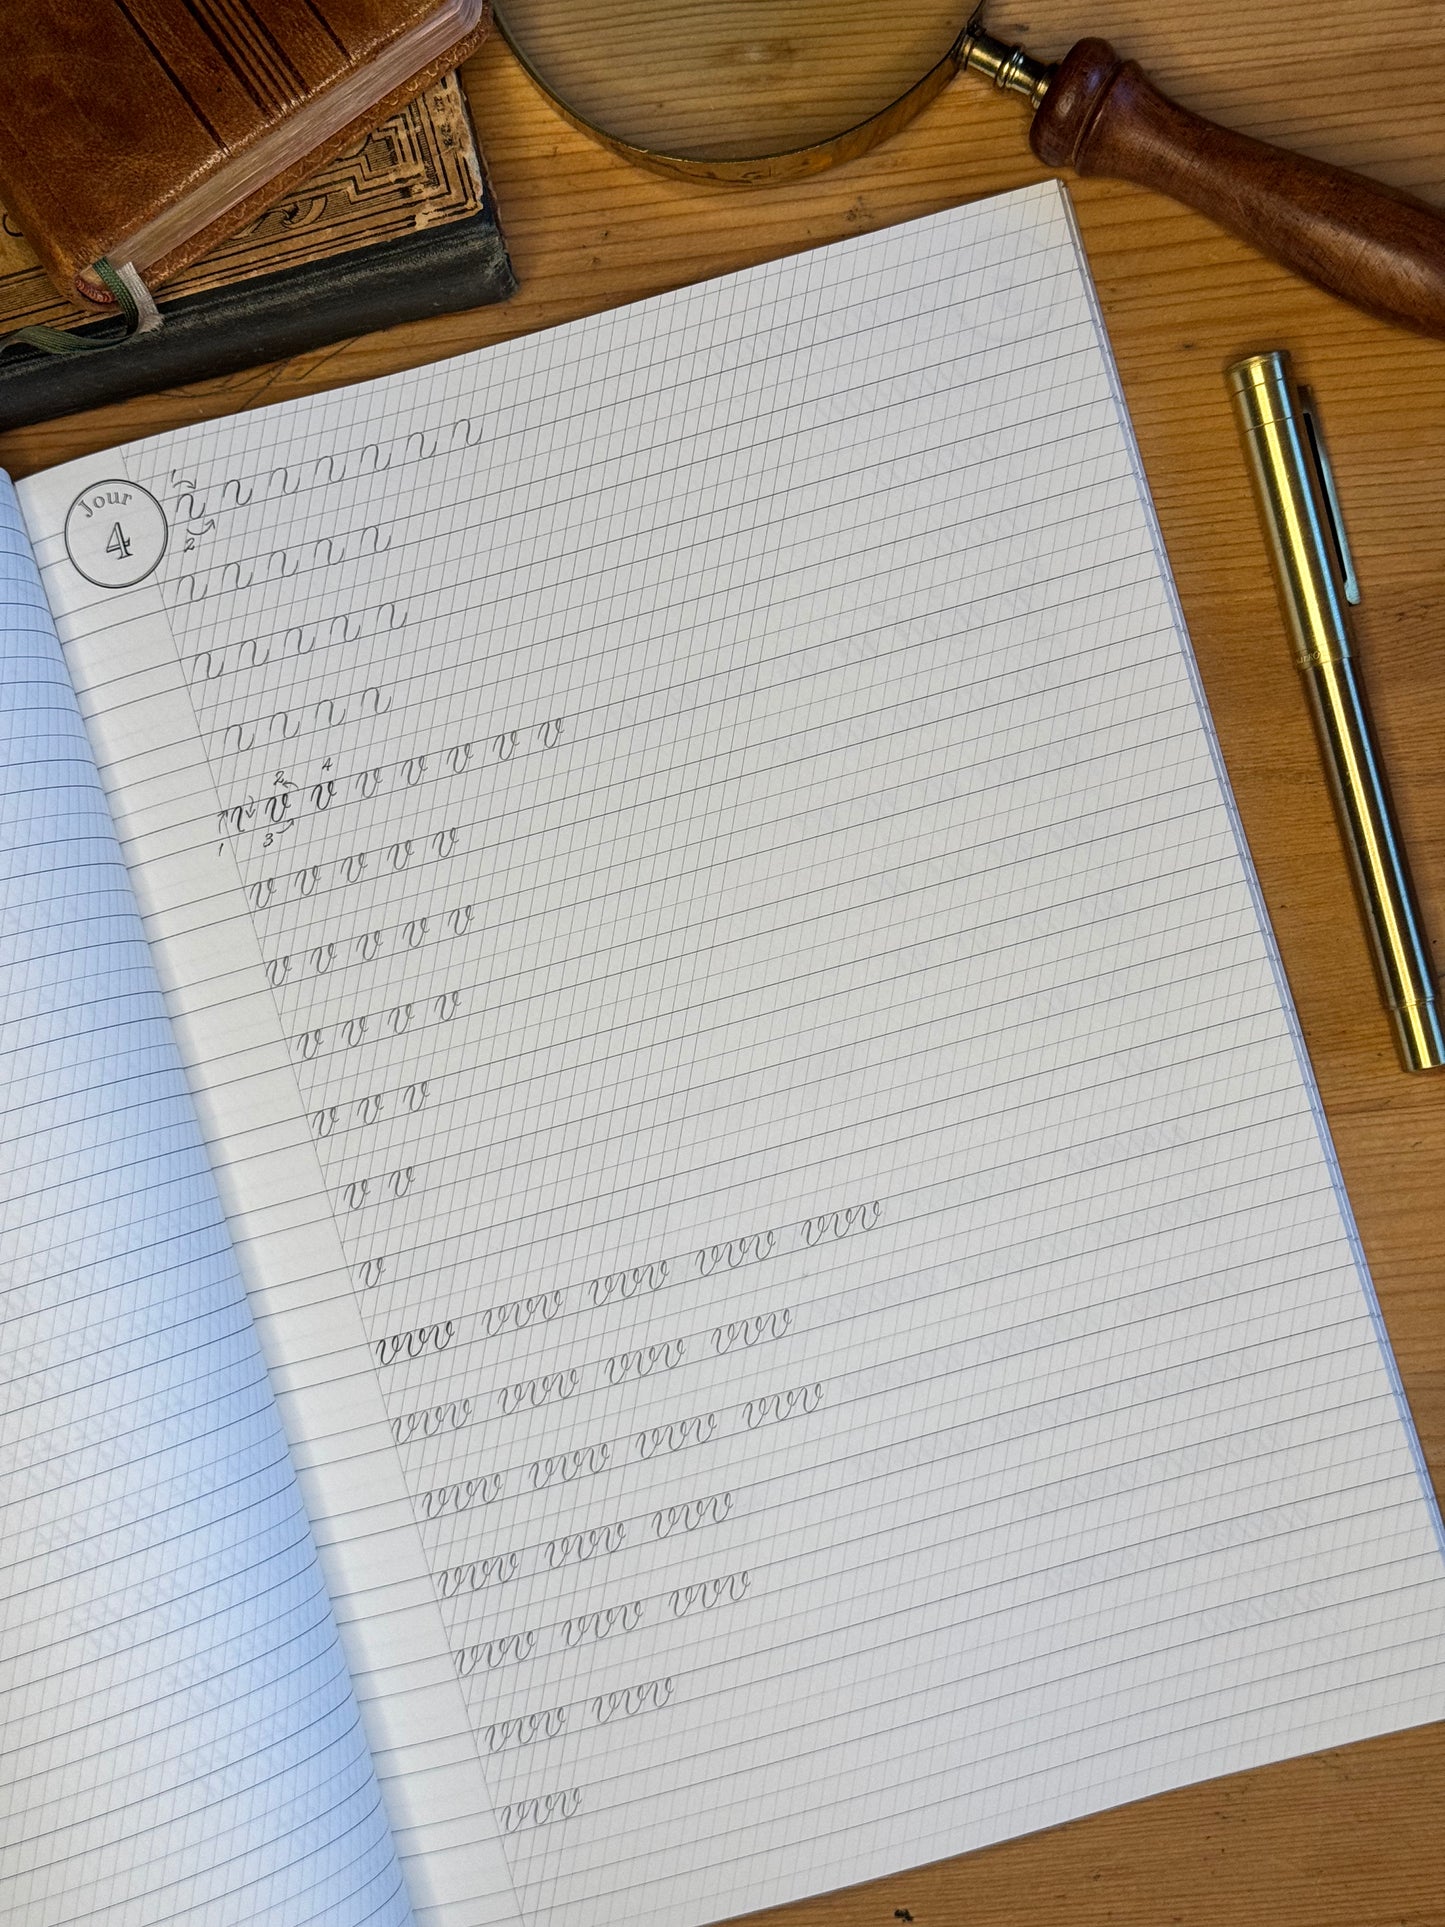 Jour
4
1
2
2 4
v v v v v v v
1 3
v v v v v
v v v v v
v v v v
v v v
v v
v
vvv vvv vvv vvv vvv
vvv vvv vvv vvv
vvv vvv vvv vvv
vvv vvv vvv
vvv vvv vvv
vvv vvv
vvv